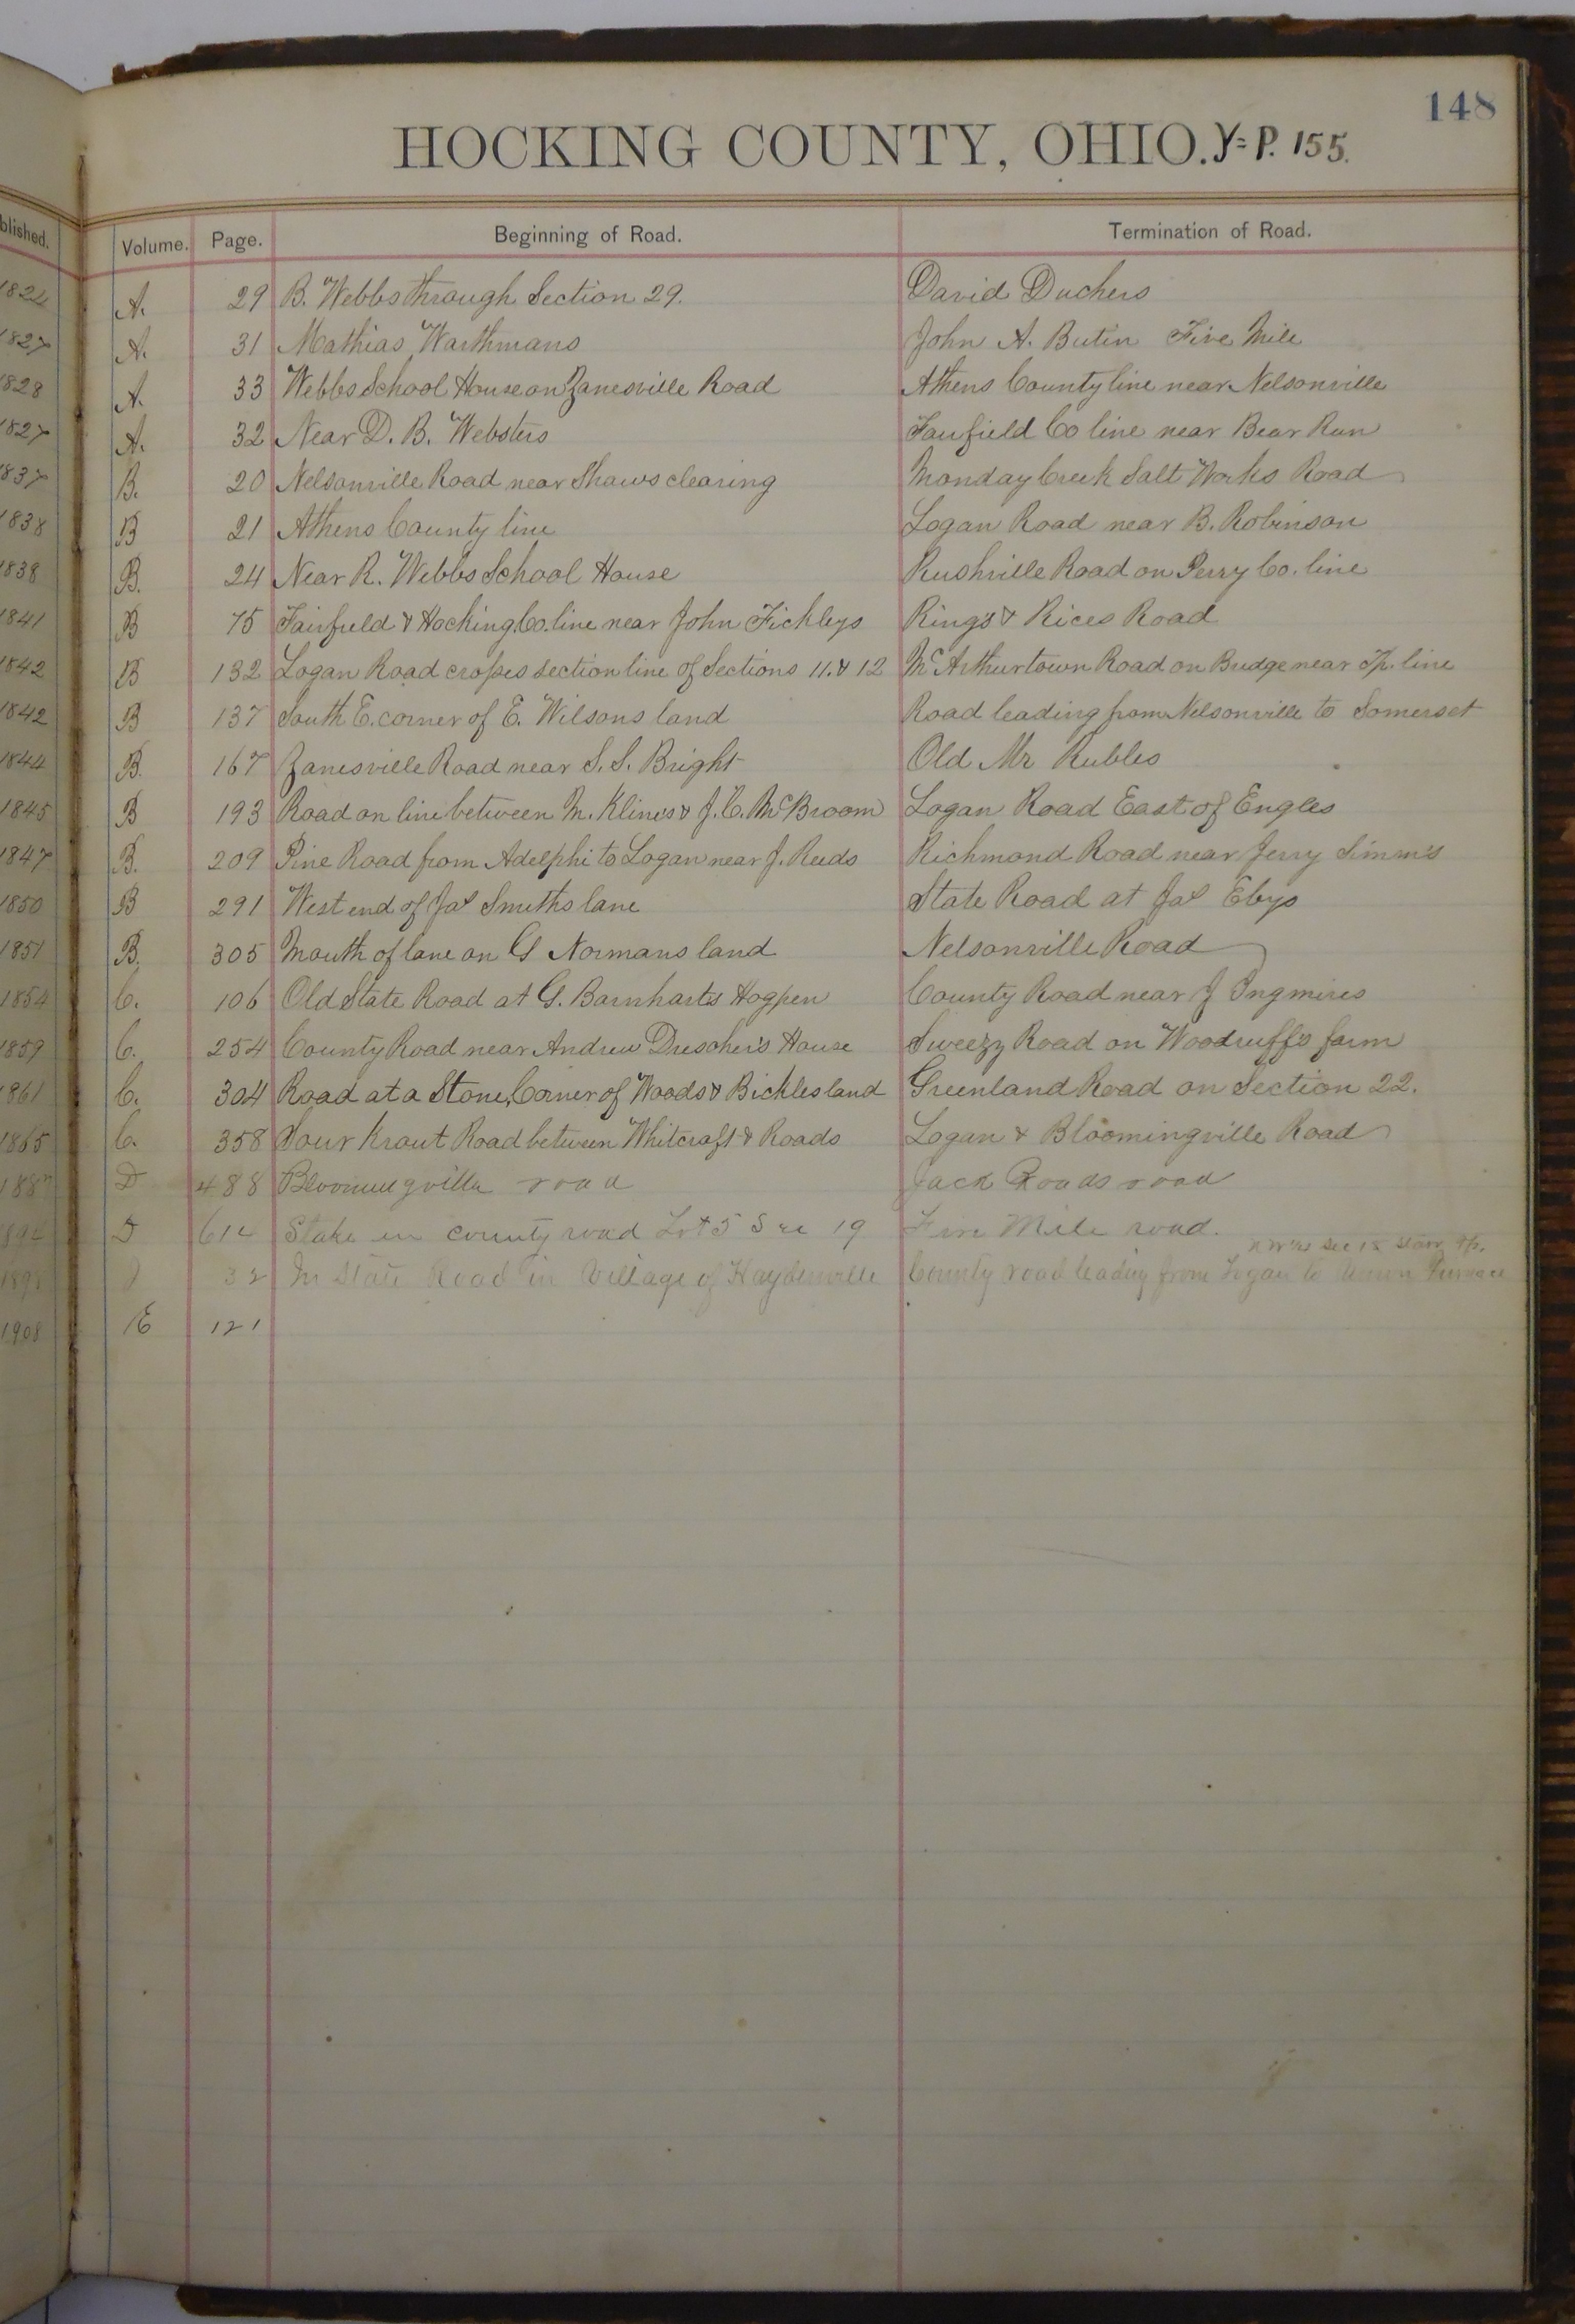 148
HOCKING COUNTY, OHIO. Y= P. 155.
blished. Volume. Page. Beginning of Road. Termination of Road.
A. 29 B. Webbs through Section 29. David Duchers
1827 A. 31 Mathias Warthmans John A. Butin Five Mile
1828 A. 33 Webbs School House on Zanesville Road Athens County line near Nelsonville
1827 A. 32 Near D. B. Websters Fairfield Co line near Bear Run
1837 B. 20 Nelsonville Road near Shaws clearing Monday Creek Salt Works Road
1838 B 21 Athens County line Logan Road near B. Robinson
1838 B. 24 Near R. Webbs School House Rushville Road on Perry Co. line
1841 B 75 Fairfield & Hocking Co. line near John Fickleys Rings & Rices Road
1842 B 132 Logan Road crosses section line of Sections 11. & 12 McArthurtown Road on Budge near Tp. line
1842 B 137 South E. corner of E. Wilsons land Road leading from Nelsonville to Somerset
1844 B. 167 Zanesville Road near S. S. Bright Old Mr Rubles
1845 B 193 Road on line between M. Klines & J. C. McBroom Logan Road East of Engles
1847 B. 209 Pine Road from Adelphi to Logan near J. Reeds Richmond Road near Jerry Simm's
1850 B 291 West end of Jas Smiths lane State Road at Jas Ebys
1851 B. 305 Mouth of lane on G Normans land Nelsonville Road
1854 C. 106 Old State Road at G. Barnharts Hogpen County Road near J Ingmires
1859 C. 254 County Road near Andrew Drescher's House Sweezy Road on Woodruffs farm
1861 C. 304 Road at a Stone, Corner of Woods & Bickles land Greenland Road on Section 22.
1865 C. 358 Sour Kraut Road between Whitcraft & Roads Logan & Bloomingville Road
D 488 Bloomingville road Jack Roads road
D 612 Stake in county road Lot 5 Sec 19 Five Mile road.
sec 18 Starr Tp.
32 In State Road in Village of Haydenville County road leading from Logan to Union Furnace
1908 E 121